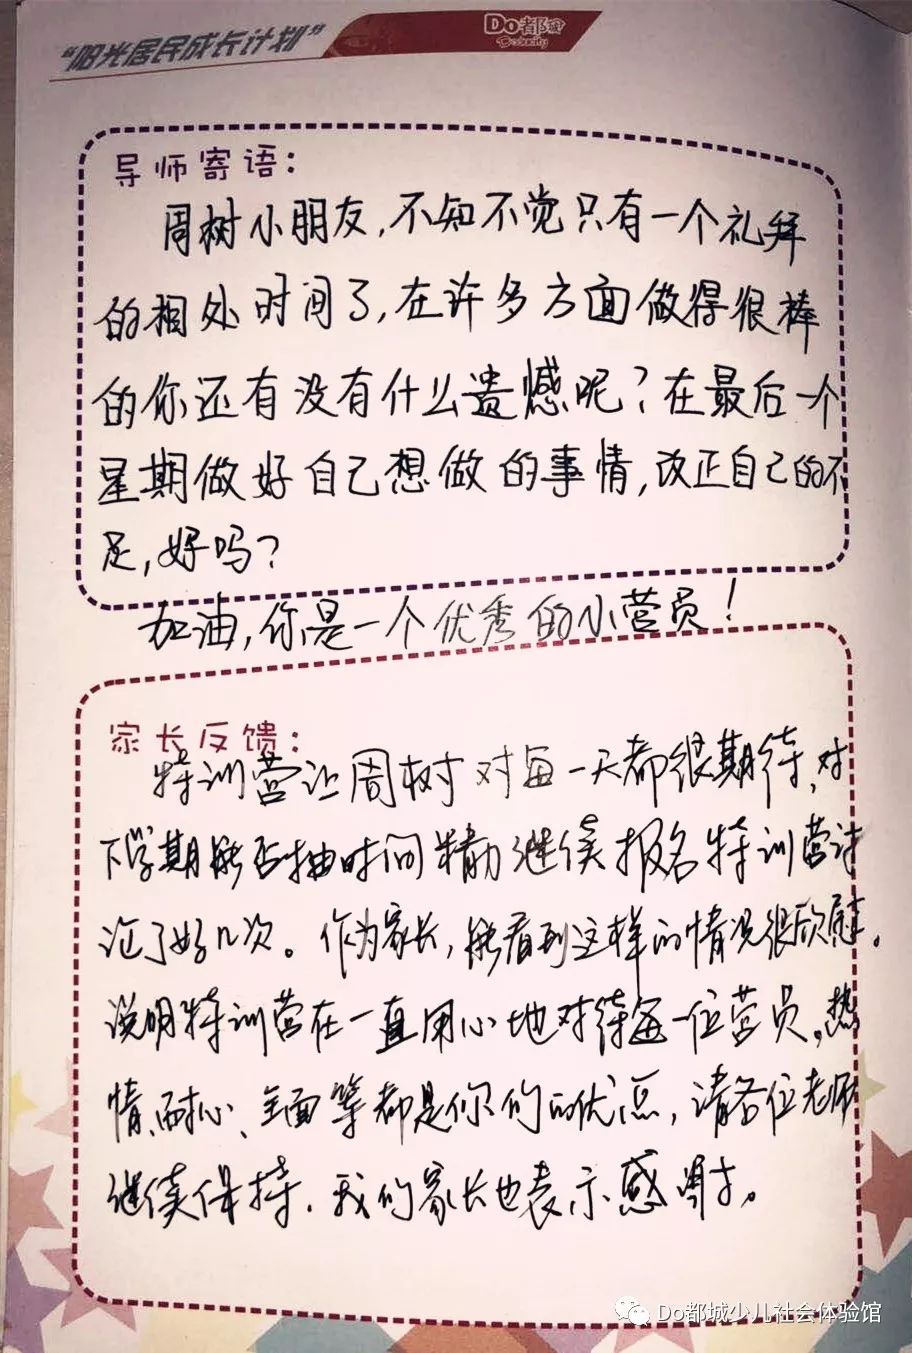 “阳光居民成长计划”
Do都城
Docity
导师寄语：
周树小朋友，不知不觉只有一个礼拜
的相处时间了，在许多方面做得很棒
的你还有没有什么遗憾呢？在最后一个
星期做好自己想做的事情，改正自己的不
足，好吗？
加油，你是一个优秀的小营员！
家长反馈：
特训营让周树对每一天都很期待，对
下学期能否抽时间精力继续报名特训营讨
论了好几次。作为家长，能看到这样的情况很欣慰。
说明特训营在一直用心地对待每一位营员。热
情、耐心、全面等都是你们的优点，请各位老师
继续保持，我们家长也表示感谢。
Do都城少儿社会体验馆